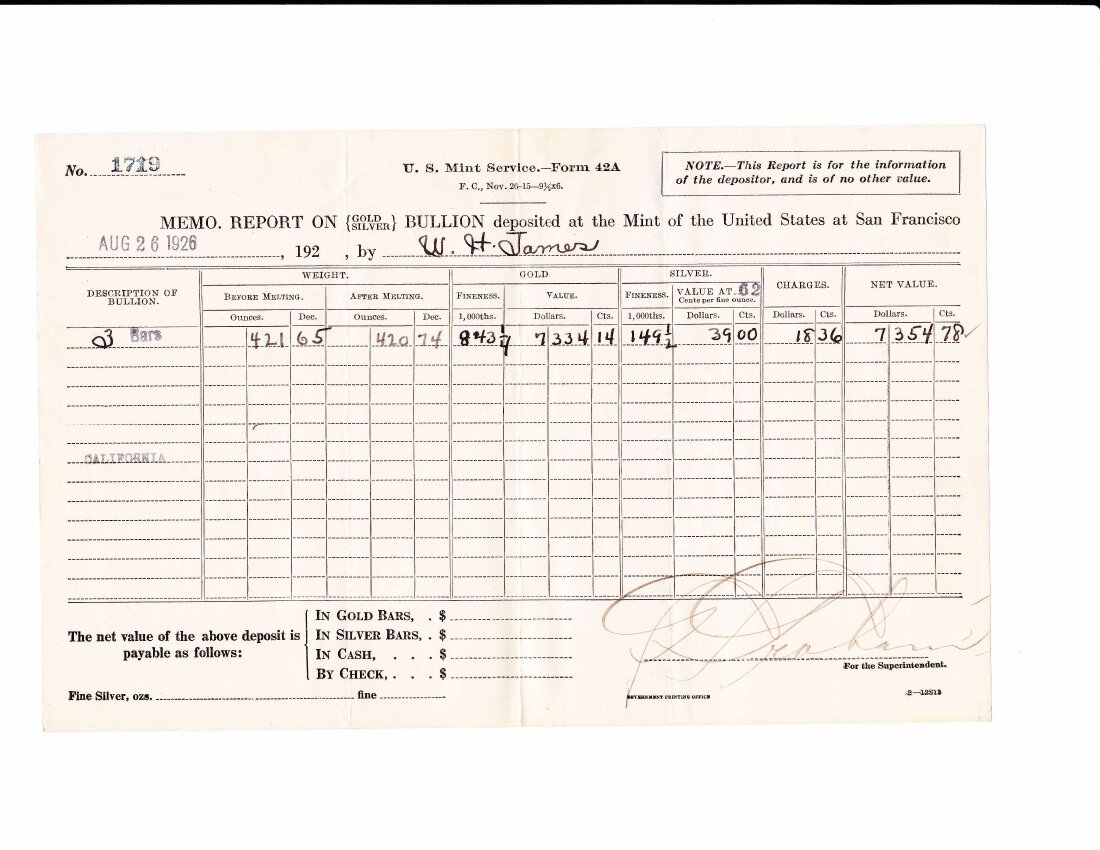 No. 1719
U. S. Mint Service.—Form 42A
F. C., Nov. 26-15—9½x6.
NOTE.—This Report is for the information
of the depositor, and is of no other value.
MEMO. REPORT ON {GOLD SILVER} BULLION deposited at the Mint of the United States at San Francisco
AUG 26 1926, 192 , by W. H. James
DESCRIPTION OF BULLION. WEIGHT. GOLD. SILVER. CHARGES. NET VALUE.
BEFORE MELTING. AFTER MELTING. FINENESS. VALUE. FINENESS. VALUE AT 62 Cents per fine ounce.
Ounces. Dec. Ounces. Dec. 1,000ths. Dollars. Cts. 1,000ths. Dollars. Cts. Dollars. Cts. Dollars. Cts.
3 Bars 421 65 420 74 843 1/4 7 334 14 149 1/2 39 00 18 36 7 354 78
CALIFORNIA
The net value of the above deposit is
payable as follows:
IN GOLD BARS, . $
IN SILVER BARS, . $
IN CASH, . . . $
BY CHECK, . . . $
For the Superintendent.
Fine Silver, ozs. fine
GOVERNMENT PRINTING OFFICE
2—12313